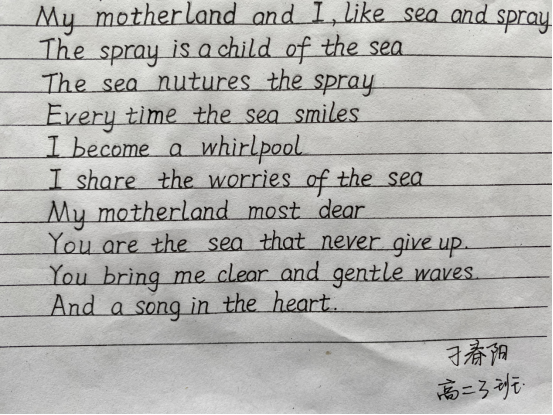 My motherland and I, like sea and spray
The spray is a child of the sea
The sea nutures the spray
Every time the sea smiles
I become a whirlpool
I share the worries of the sea
My motherland most dear
You are the sea that never give up.
You bring me clear and gentle waves.
And a song in the heart.
刁春阳
高二3班